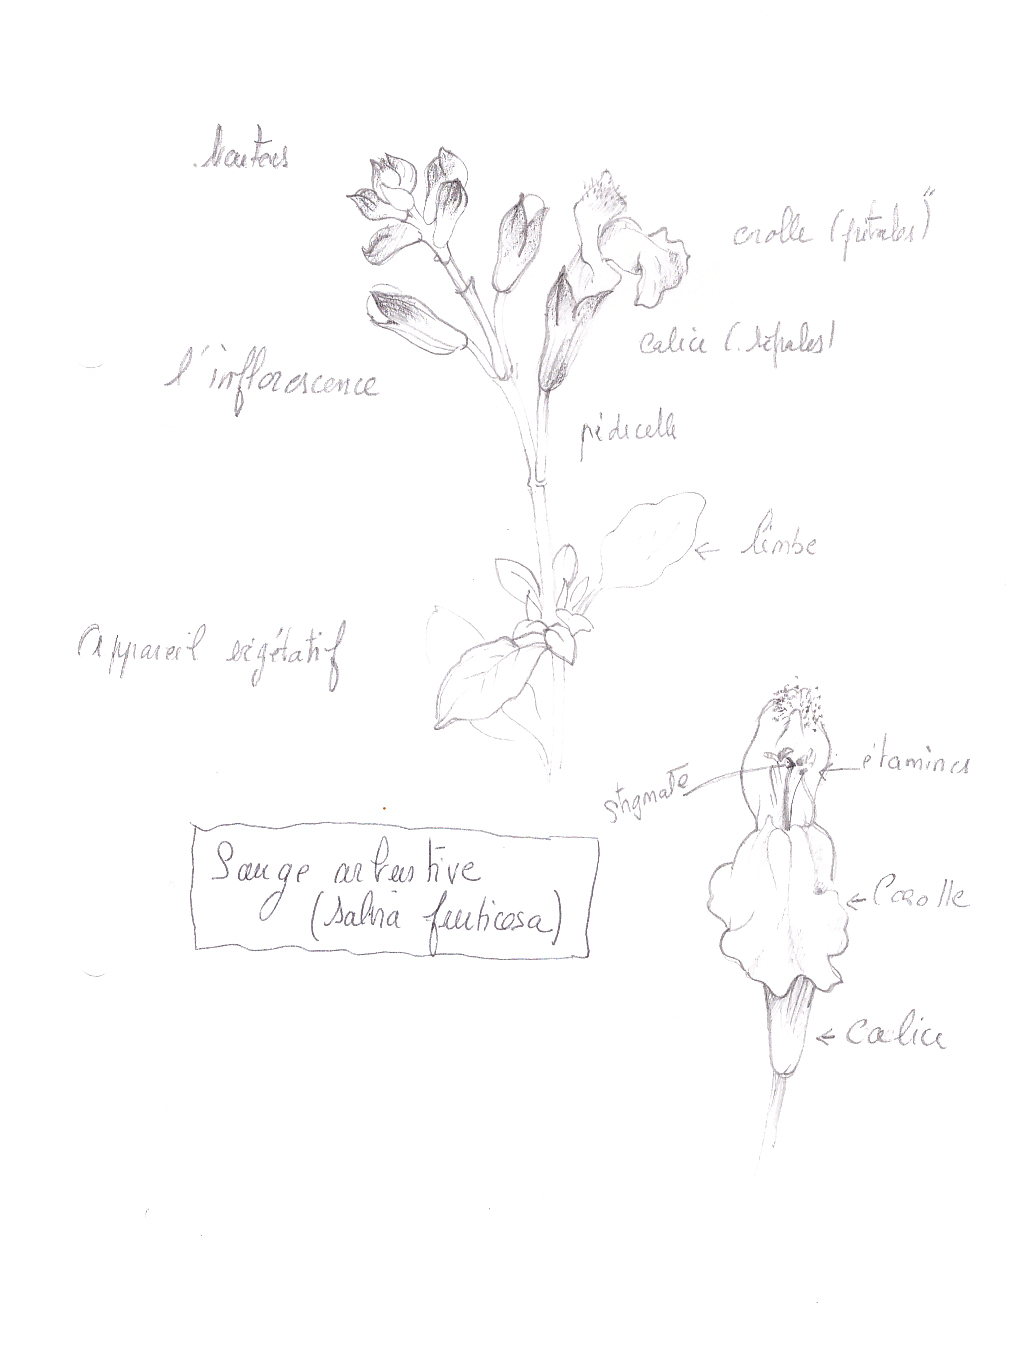 boutons
corolle (pétales)
calice (sépales)
l'inflorescence
pédicelle
limbe
appareil végétatif
étamines
stigmate
Sauge arbustive
(salvia fruticosa)
Corolle
Calice